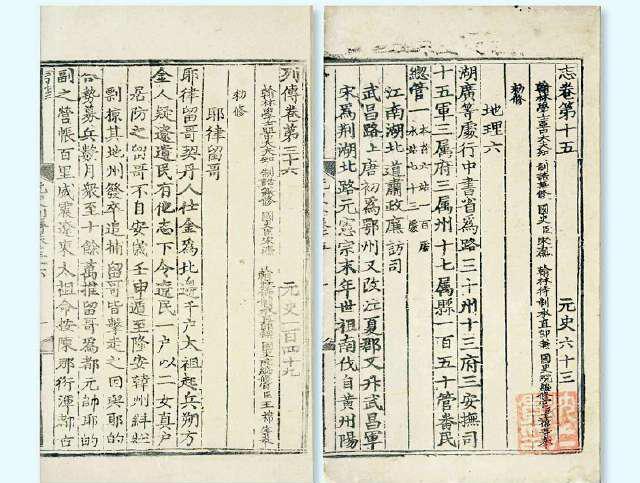 志卷第十五 元史六十三
翰林學士亞中大夫知 制誥兼修 國史臣宋濂 翰林待制承直郎兼 國史院編修官臣王禕等奉
勑修
地理六
湖廣等處行中書省為路三十州十三府三安撫司
十五軍三属府三属州十七属縣一百五十管番民
總管一
江南湖北道肅政廉訪司
武昌路上唐初為鄂州又改江夏郡又升武昌軍
宋為荆湖北路元憲宗末年世祖南伐自黄州陽
列傳卷第三十六 元史一百四十九
翰林學士亞中大夫知 制誥兼修 國史臣宋濂
勑修
耶律留哥
耶律留哥契丹人仕金為北邊千户太祖起兵朔方
金人疑遼遺民有他志下令遼民一户以二女真户
居防之留哥不自安歲壬申遁至隆安韓州糾壯
剽掠其地州發卒追捕留哥皆擊走之因與耶的
合勢募兵數月衆至十餘萬推留哥為都元帥耶的
副之營帳百里威震遼東太祖命按陳那衍渾都古